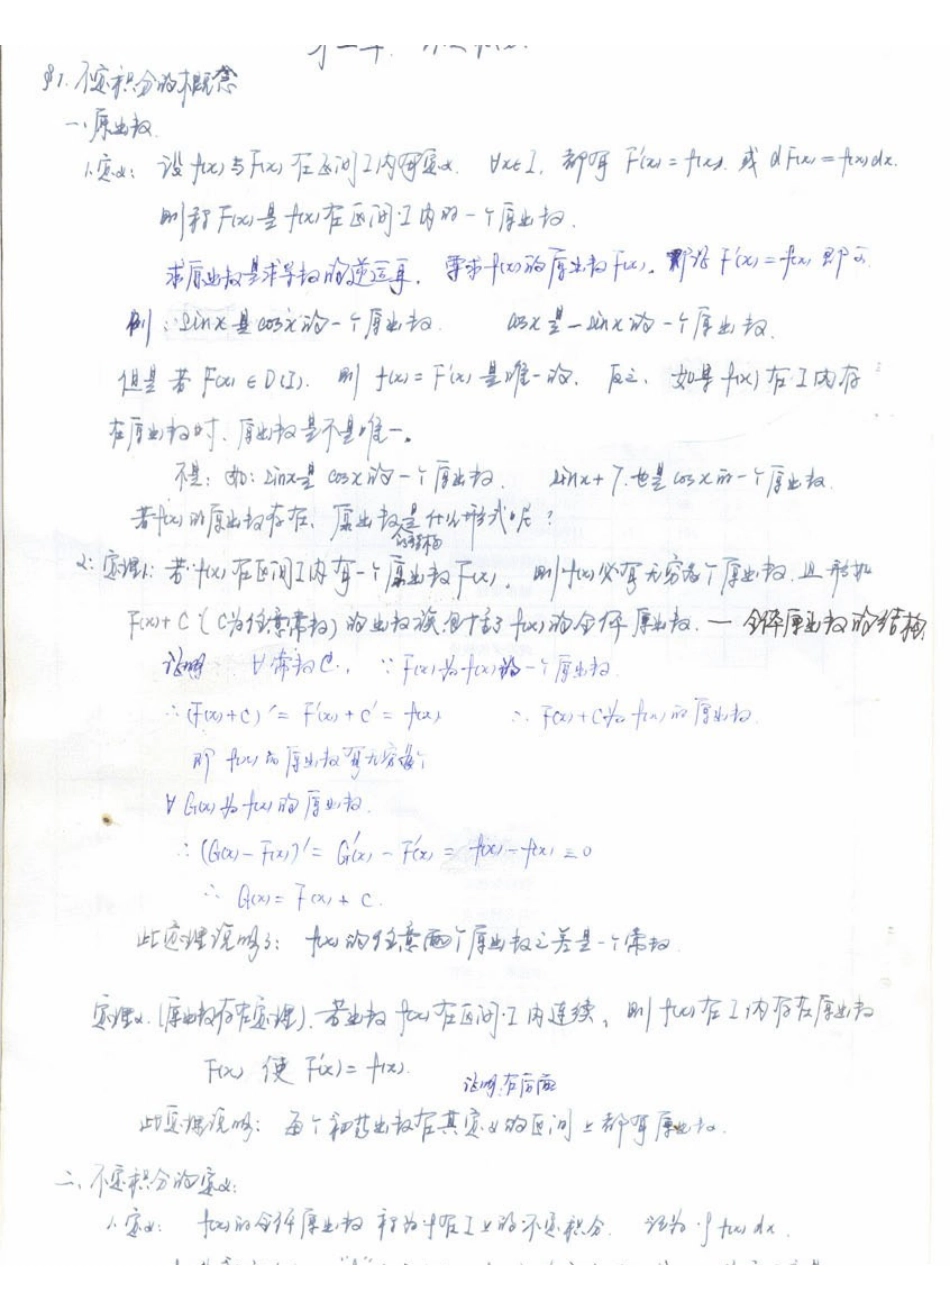 §1. 不定积分的概念
一、原函数
1.定义: 设 f(x) 与 F(x) 在区间 I 内有定义. ∀x∈I, 都有 F'(x) = f(x). 或 dF(x) = f(x)dx.
则称 F(x) 是 f(x) 在区间 I 内的一个原函数.
求原函数是求导数的逆运算. 要求 f(x) 的原函数 F(x), 即 F'(x) = f(x) 即可
例: sinx 是 cosx 的一个原函数. cosx 是 -sinx 的一个原函数.
但是 若 F(x) ∈ D(I). 则 f(x) = F'(x) 是唯一的. 反之, 如果 f(x) 在 I 内存
在原函数时, 原函数是不是唯一.
不是: 如: sinx 是 cosx 的一个原函数. sinx + 7. 也是 cosx 的一个原函数.
若 f(x) 的原函数存在, 原函数是什么形式呢?
的结构
2. 定理1: 若 f(x) 在区间 I 内有一个原函数 F(x), 则 f(x) 必有无穷多个原函数, 且形如
F(x) + C (C为任意常数) 的函数族包括了 f(x) 的全体原函数. — 全体原函数的结构
证明: ∀常数C, ∵ F(x) 为 f(x) 的一个原函数
∴ (F(x) + C)' = F'(x) + C' = f(x) ∴ F(x) + C 为 f(x) 的原函数.
即 f(x) 的原函数有无穷多个
∀ G(x) 为 f(x) 的原函数.
∴ (G(x) - F(x))' = G'(x) - F'(x) = f(x) - f(x) ≡ 0
∴ G(x) = F(x) + C.
此定理说明了: f(x) 的任意两个原函数之差是一个常数.
定理2. (原函数存在定理). 若函数 f(x) 在区间 I 内连续, 则 f(x) 在 I 内存在原函数
F(x) 使 F'(x) = f(x).
证明在后面
此定理说明: 每个初等函数在其定义的区间上都有原函数.
二、不定积分的定义:
1.定义: f(x) 的全体原函数 称为 f 在 I 上的不定积分. 记为 ∫ f(x) dx.